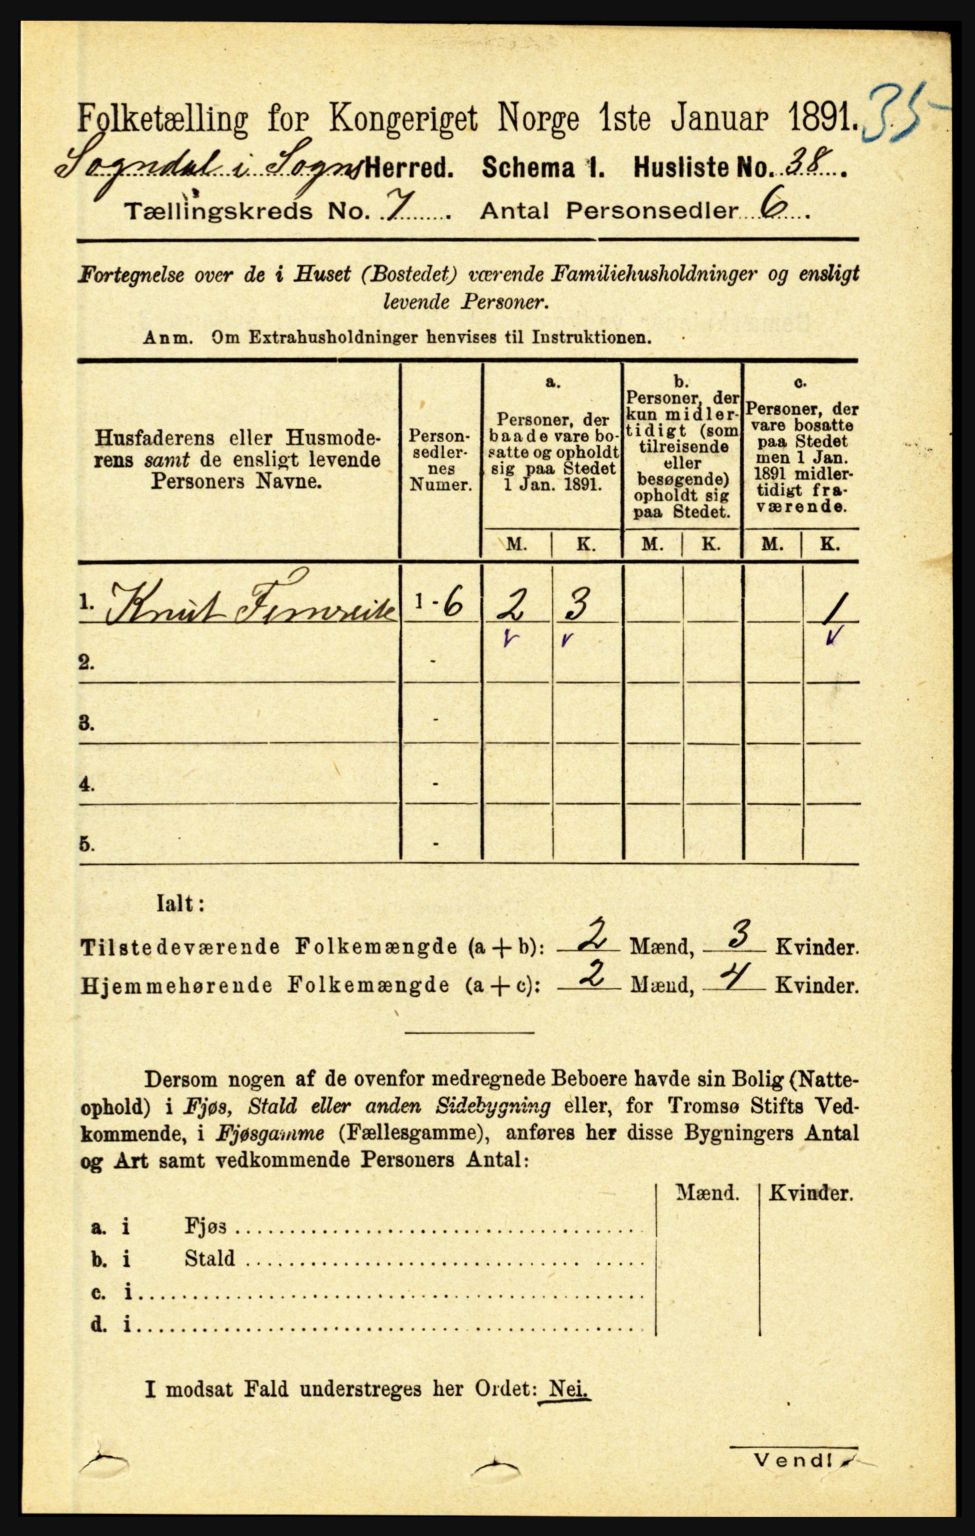 35
Folketælling for Kongeriget Norge 1ste Januar 1891.
Sogndal i Sogns Herred. Schema 1. Husliste No. 38.
Tællingskreds No. 7. Antal Personsedler 6.
Fortegnelse over de i Huset (Bostedet) værende Familiehusholdninger og ensligt
levende Personer.
Anm. Om Extrahusholdninger henvises til Instruktionen.
Husfaderens eller Husmode-
rens samt de ensligt levende
Personers Navne.
Person-
sedler-
nes
Numer.
a.
Personer, der
baade vare bo-
satte og opholdt
sig paa Stedet
1 Jan. 1891.
b.
Personer, der
kun midler-
tidigt (som
tilreisende
eller
besøgende)
opholdt sig
paa Stedet.
c.
Personer, der
vare bosatte
paa Stedet
men 1 Jan.
1891 midler-
tidigt fra-
værende.
M. K. M. K. M. K.
1. Knut Fimreite 1-6 2 3 1
2. -
3. -
4. -
5. -
Ialt:
Tilstedeværende Folkemængde (a+b): 2 Mænd, 3 Kvinder.
Hjemmehørende Folkemængde (a+c): 2 Mænd, 4 Kvinder.
Dersom nogen af de ovenfor medregnede Beboere havde sin Bolig (Natte-
ophold) i Fjøs, Stald eller anden Sidebygning eller, for Tromsø Stifts Ved-
kommende, i Fjøsgamme (Fællesgamme), anføres her disse Bygningers Antal
og Art samt vedkommende Personers Antal:
Mænd. Kvinder.
a. i Fjøs
b. i Stald
c. i
d. i
I modsat Fald understreges her Ordet: Nei.
Vend!